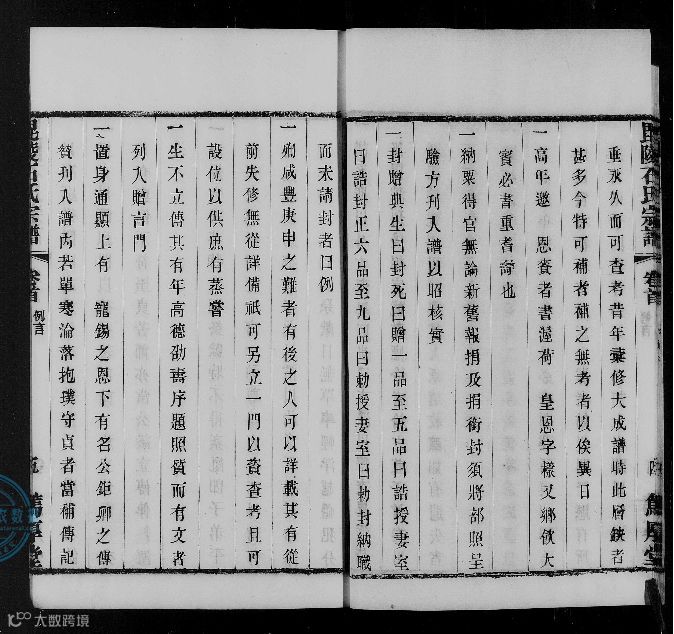 垂永久而可查考昔年彙修大成譜時此層缺者
甚多今特可補者補之無考者以俟異日
一高年邀 恩賚者書渥荷 皇恩字樣又鄉飲大
賓必書重耆齒也
一納粟得官無論新舊報捐及捐銜封須將部照呈
驗方刋入譜以昭核實
一封贈典生曰封死曰贈一品至五品曰誥授妻室
曰誥封正六品至九品曰勅授妻室曰勅封納職
毘陵石氏宗譜 卷首 例言
篤厚堂
而未請封者曰例
一殉咸豐庚申之難者有後之人可以詳載其有從
前失修無從詳備祇可另立一門以資查考且可
設位以供庶有蒸嘗
一生不立傳其有年高德劭壽序題照贊而有文者
列入贈言門
一置身通顯上有 寵錫之恩下有名公鉅卿之傳
贊刋入譜內若單寒淪落抱璞守貞者當補傳記
大数跨境